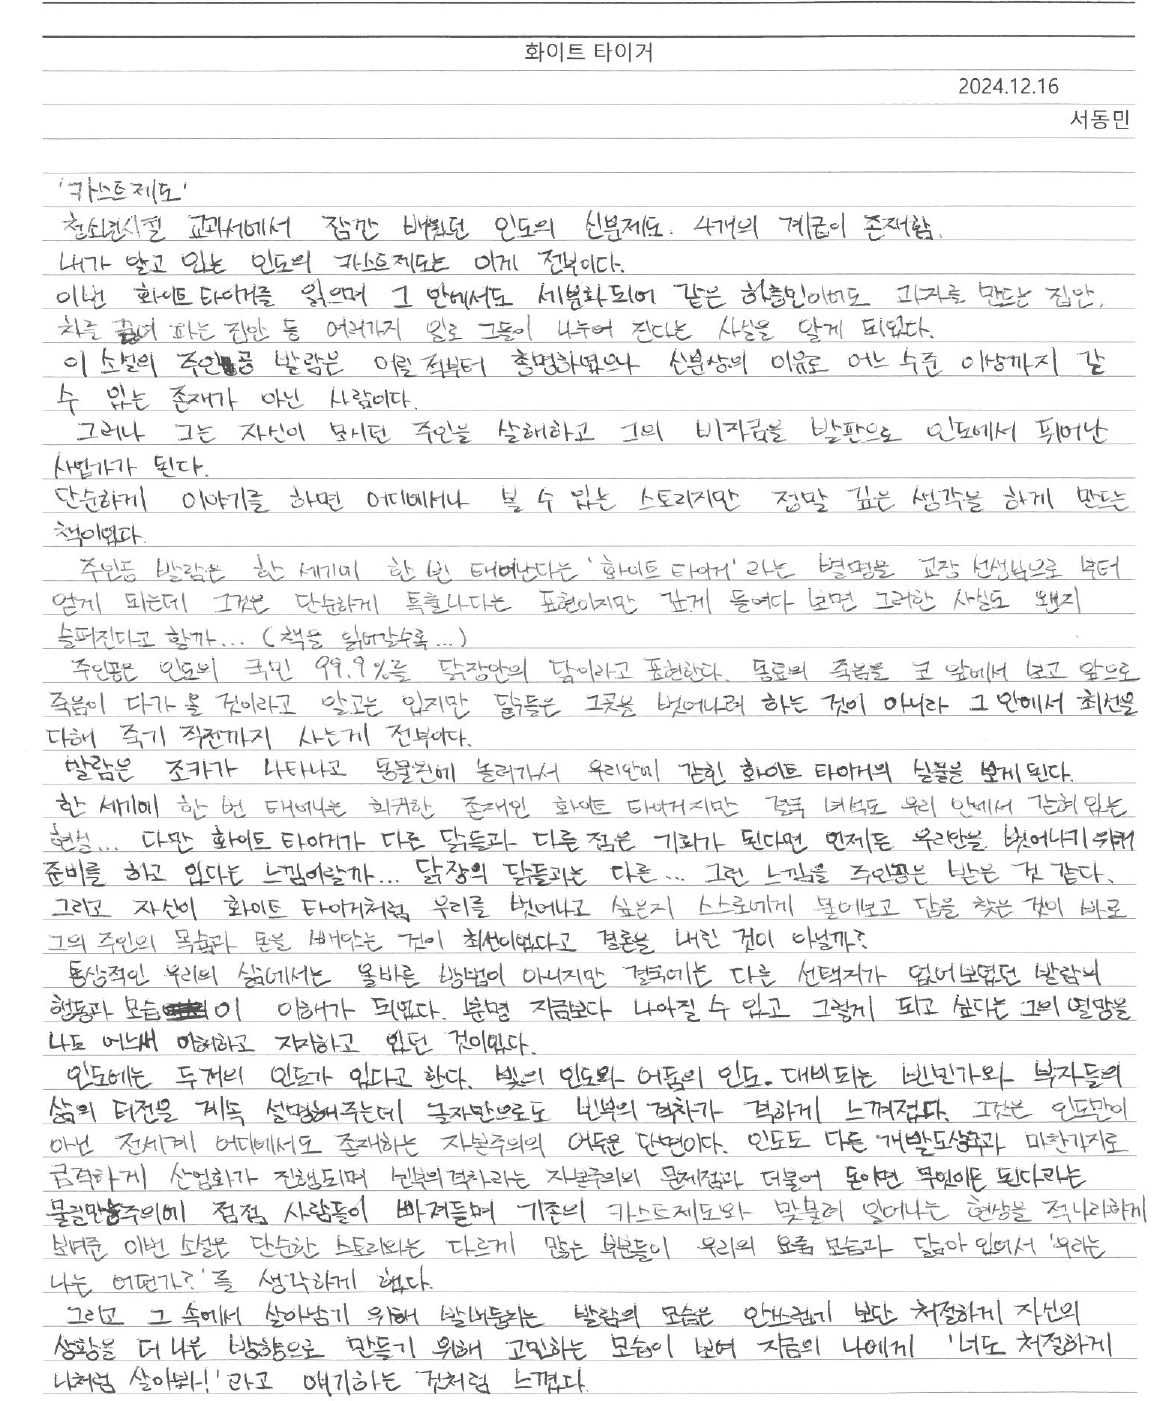 화이트 타이거
2024.12.16
서동민
'카스트제도'
청소년시절 교과서에서 잠깐 배웠던 인도의 신분제도. 4개의 계급이 존재함.
내가 알고 있는 인도의 카스트제도는 이게 전부이다.
이번 화이트타이거를 읽으며 그 안에서도 세분화되어 같은 하층민이어도 과자를 만드는 집안,
차를 끓여 파는 집안 등 여러가지 일로 그들이 나누어 진다는 사실을 알게 되었다.
이 소설의 주인공 발람은 어릴 적부터 총명하였으나 신분상의 이유로 어느 수준 이상까지 갈
수 있는 존재가 아닌 사람이다.
그러나 그는 자신이 모시던 주인을 살해하고 그의 비자금을 발판으로 인도에서 뛰어난
사업가가 된다.
단순하게 이야기를 하면 어디에서나 볼 수 있는 스토리지만 정말 깊은 생각을 하게 만드는
책이였다.
주인공 발람은 한 세기에 한 번 태어난다는 '화이트 타이거'라는 별명을 교장 선생님으로 부터
얻게 되는데 그것은 단순하게 특출나다는 표현이지만 깊게 들여다 보면 그러한 사실도 왠지
슬퍼진다고 할까... (책을 읽어갈수록...)
주인공은 인도의 국민 99.9%를 닭장안의 닭이라고 표현한다. 동료의 죽음을 코 앞에서 보고 앞으로
죽음이 다가 올 것이라고 알고는 있지만 닭들은 그곳을 벗어나려 하는 것이 아니라 그 안에서 최선을
다해 죽기 직전까지 사는게 전부이다.
발람은 조카가 나타나고 동물원에 놀러가서 우리안에 갇힌 화이트 타이거의 실물을 보게된다.
한 세기에 한 번 태어나는 희귀한 존재인 화이트 타이거지만 결국 녀석도 우리 안에서 갇혀있는
현실... 다만 화이트 타이거가 다른 닭들과 다른 점은 기회가 된다면 언제든 우리안을 벗어나기 위해
준비를 하고 있다는 느낌이랄까... 닭장의 닭들과는 다른... 그런 느낌을 주인공은 받은 것 같다.
그리고 자신이 화이트 타이거처럼 우리를 벗어나고 싶은지 스스로에게 물어보고 답을 찾은 것이 바로
그의 주인의 목숨과 돈을 빼앗는 것이 최선이였다고 결론을 내린 것이 아닐까?
통상적인 우리의 삶에서는 올바른 방법이 아니지만 결국에는 다른 선택지가 없어보였던 발람의
행동과 모습이 이해가 되었다. 분명 지금보다 나아질 수 있고 그렇게 되고 싶다는 그의 열망을
나도 어느새 이해하고 지지하고 있던 것이었다.
인도에는 두개의 인도가 있다고 한다. 빛의 인도와 어둠의 인도. 대비되는 빈민가와 부자들의
삶의 터전을 계속 설명해주는데 글자만으로도 빈부의 격차가 격하게 느껴졌다. 그것은 인도만이
아닌 전세계 어디에서도 존재하는 자본주의의 어두운 단면이다. 인도도 다른 개발도상국과 마찬가지로
급격하게 산업화가 진행되며 빈부의격차라는 자본주의의 문제점과 더불어 돈이면 무엇이든 된다라는
물질만능주의에 점점 사람들이 빠져들며 기존의 카스트제도와 맞물려 일어나는 현상을 적나라하게
보여준 이번 소설은 단순한 스토리와는 다르게 많은 부분들이 우리의 요즘 모습과 닮아 있어서 '우리는
나는 어떤가?'를 생각하게 했다.
그리고 그 속에서 살아남기 위해 발버둥치는 발람의 모습은 안쓰럽기 보단 처절하게 자신의
상황을 더 나은 방향으로 만들기 위해 고민하는 모습이 보여 지금의 나에게 '너도 처절하게
나처럼 살아봐!'라고 얘기하는 것처럼 느꼈다.